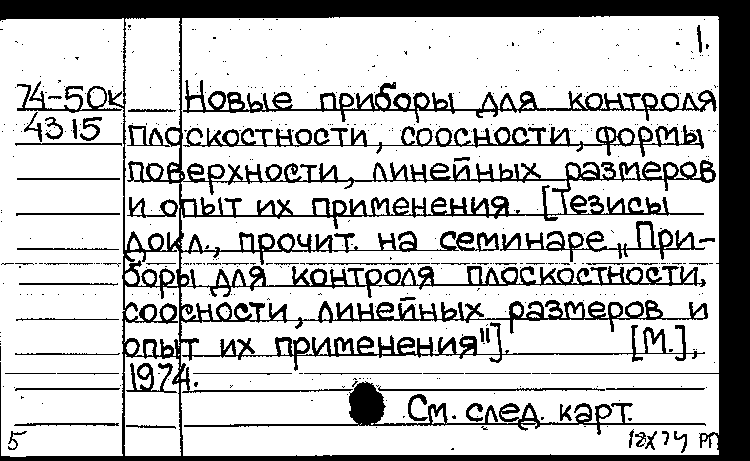 1.
74-50к Новые приборы для контроля
4315 плоскостности, соосности, формы
поверхности, линейных размеров
и опыт их применения. [Тезисы
докл., прочит. на семинаре „При-
боры для контроля плоскостности,
соосности, линейных размеров и
опыт их применения"]. [М.],
1974.
См. след. карт.
5